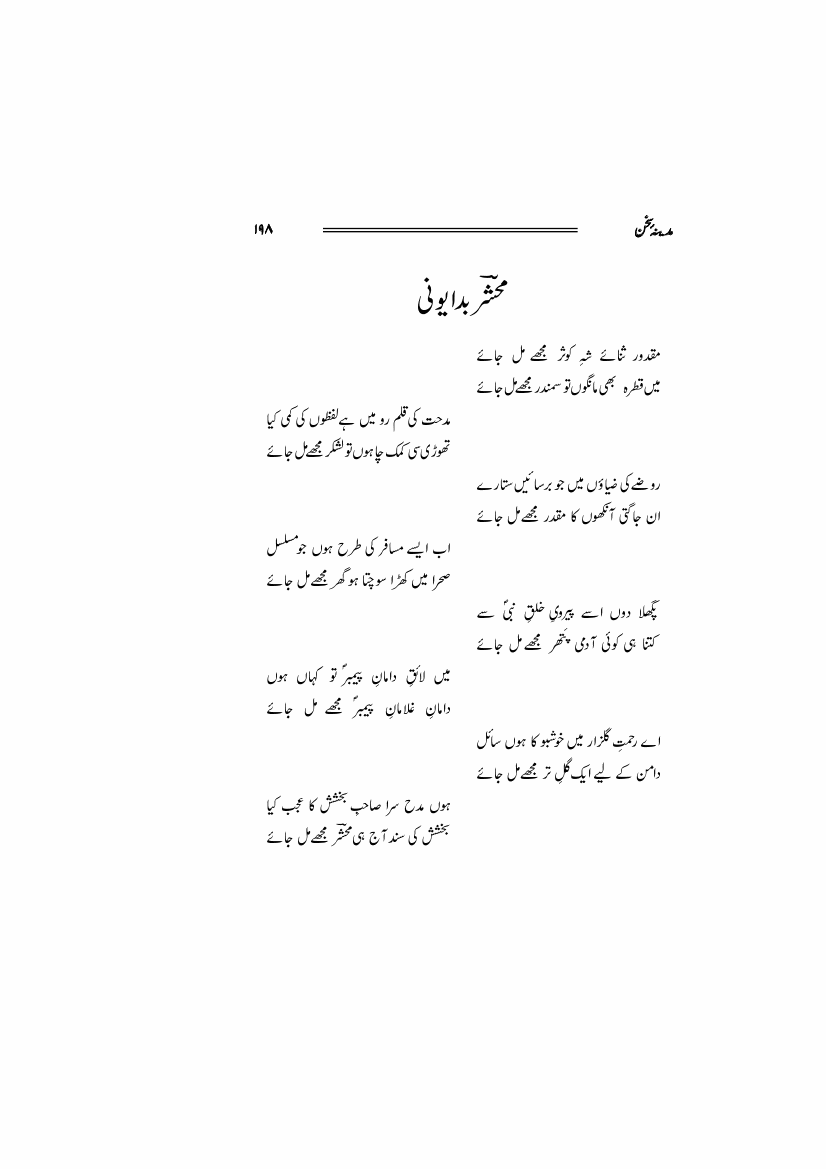 مدینہ سخن ۱۹۸
محشرؔ بدایونی
مقدور ثنائے شہِ کوثر مجھے مل جائے
میں قطرہ بھی مانگوں تو سمندر مجھے مل جائے
مدحت کی قلم رو میں ہے لفظوں کی کمی کیا
تھوڑی سی کمک چاہوں تو لشکر مجھے مل جائے
روضے کی ضیاؤں میں جو برسائیں ستارے
ان جاگتی آنکھوں کا مقدر مجھے مل جائے
اب ایسے مسافر کی طرح ہوں جو مسلسل
صحرا میں کھڑا سوچتا ہو گھر مجھے مل جائے
پگھلا دوں اسے پیرویِ خلقِ نبیؐ سے
کتنا ہی کوئی آدمی پتھر مجھے مل جائے
میں لائقِ دامانِ پیمبرؐ تو کہاں ہوں
دامانِ غلامانِ پیمبرؐ مجھے مل جائے
اے رحمتِ گلزار میں خوشبو کا ہوں سائل
دامن کے لیے ایک گلِ تر مجھے مل جائے
ہوں مدح سرا صاحبِ بخشش کا عجب کیا
بخشش کی سند آج ہی محشرؔ مجھے مل جائے